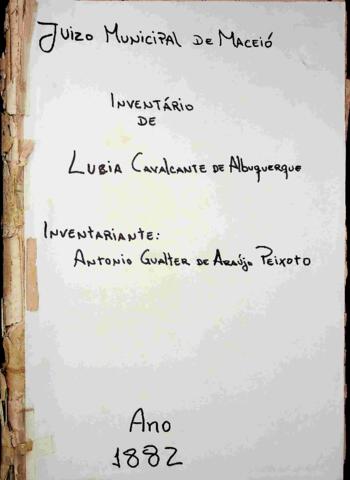 Juizo Municipal de Maceió
Inventário
de
Lubia Cavalcante de Albuquerque
Inventariante:
Antonio Gualter de Araújo Peixoto
Ano
1882